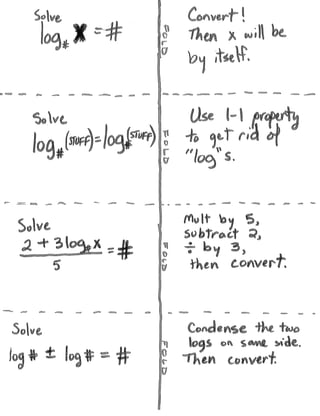 Solve
log# x = #
FOLD
Convert!
Then x will be
by itself.
Solve
log#(STUFF)=log#(STUFF)
FOLD
Use 1-1 property
to get rid of
"log"s.
Solve
2 + 3log#x
5
= #
FOLD
Mult by 5,
subtract 2,
÷ by 3,
then convert.
Solve
log # ± log # = #
FOLD
Condense the two
logs on same side.
Then convert.